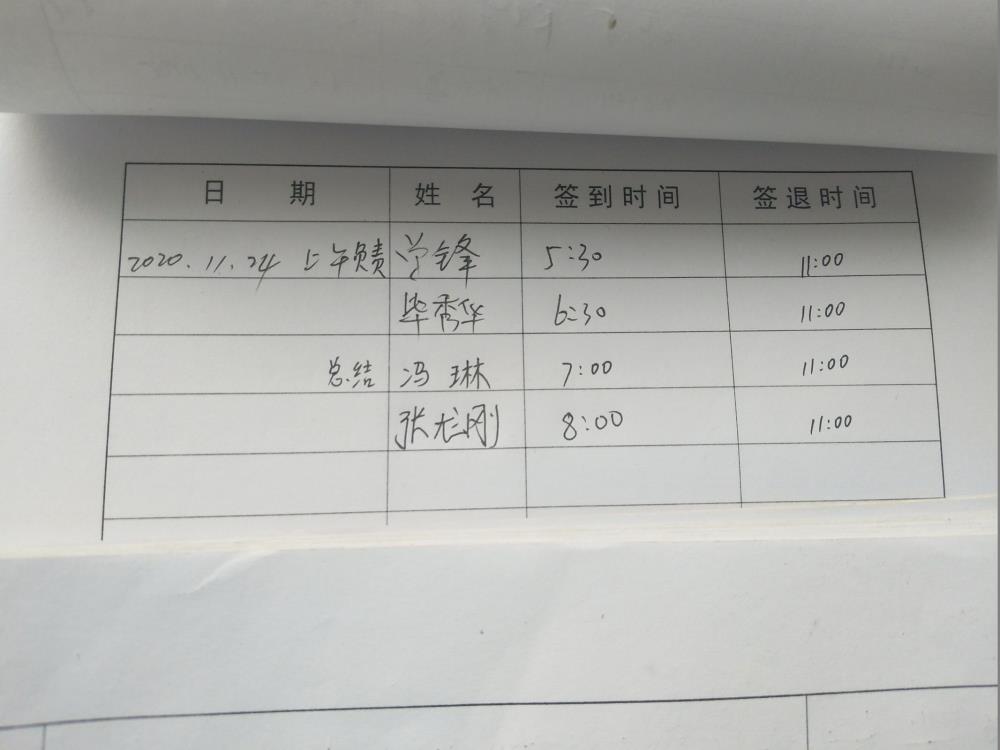 日 期 姓 名 签到时间 签退时间
2020.11.24 上午负责 学锋 5:30 11:00
毕秀华 6:30 11:00
总结 冯琳 7:00 11:00
张龙刚 8:00 11:00